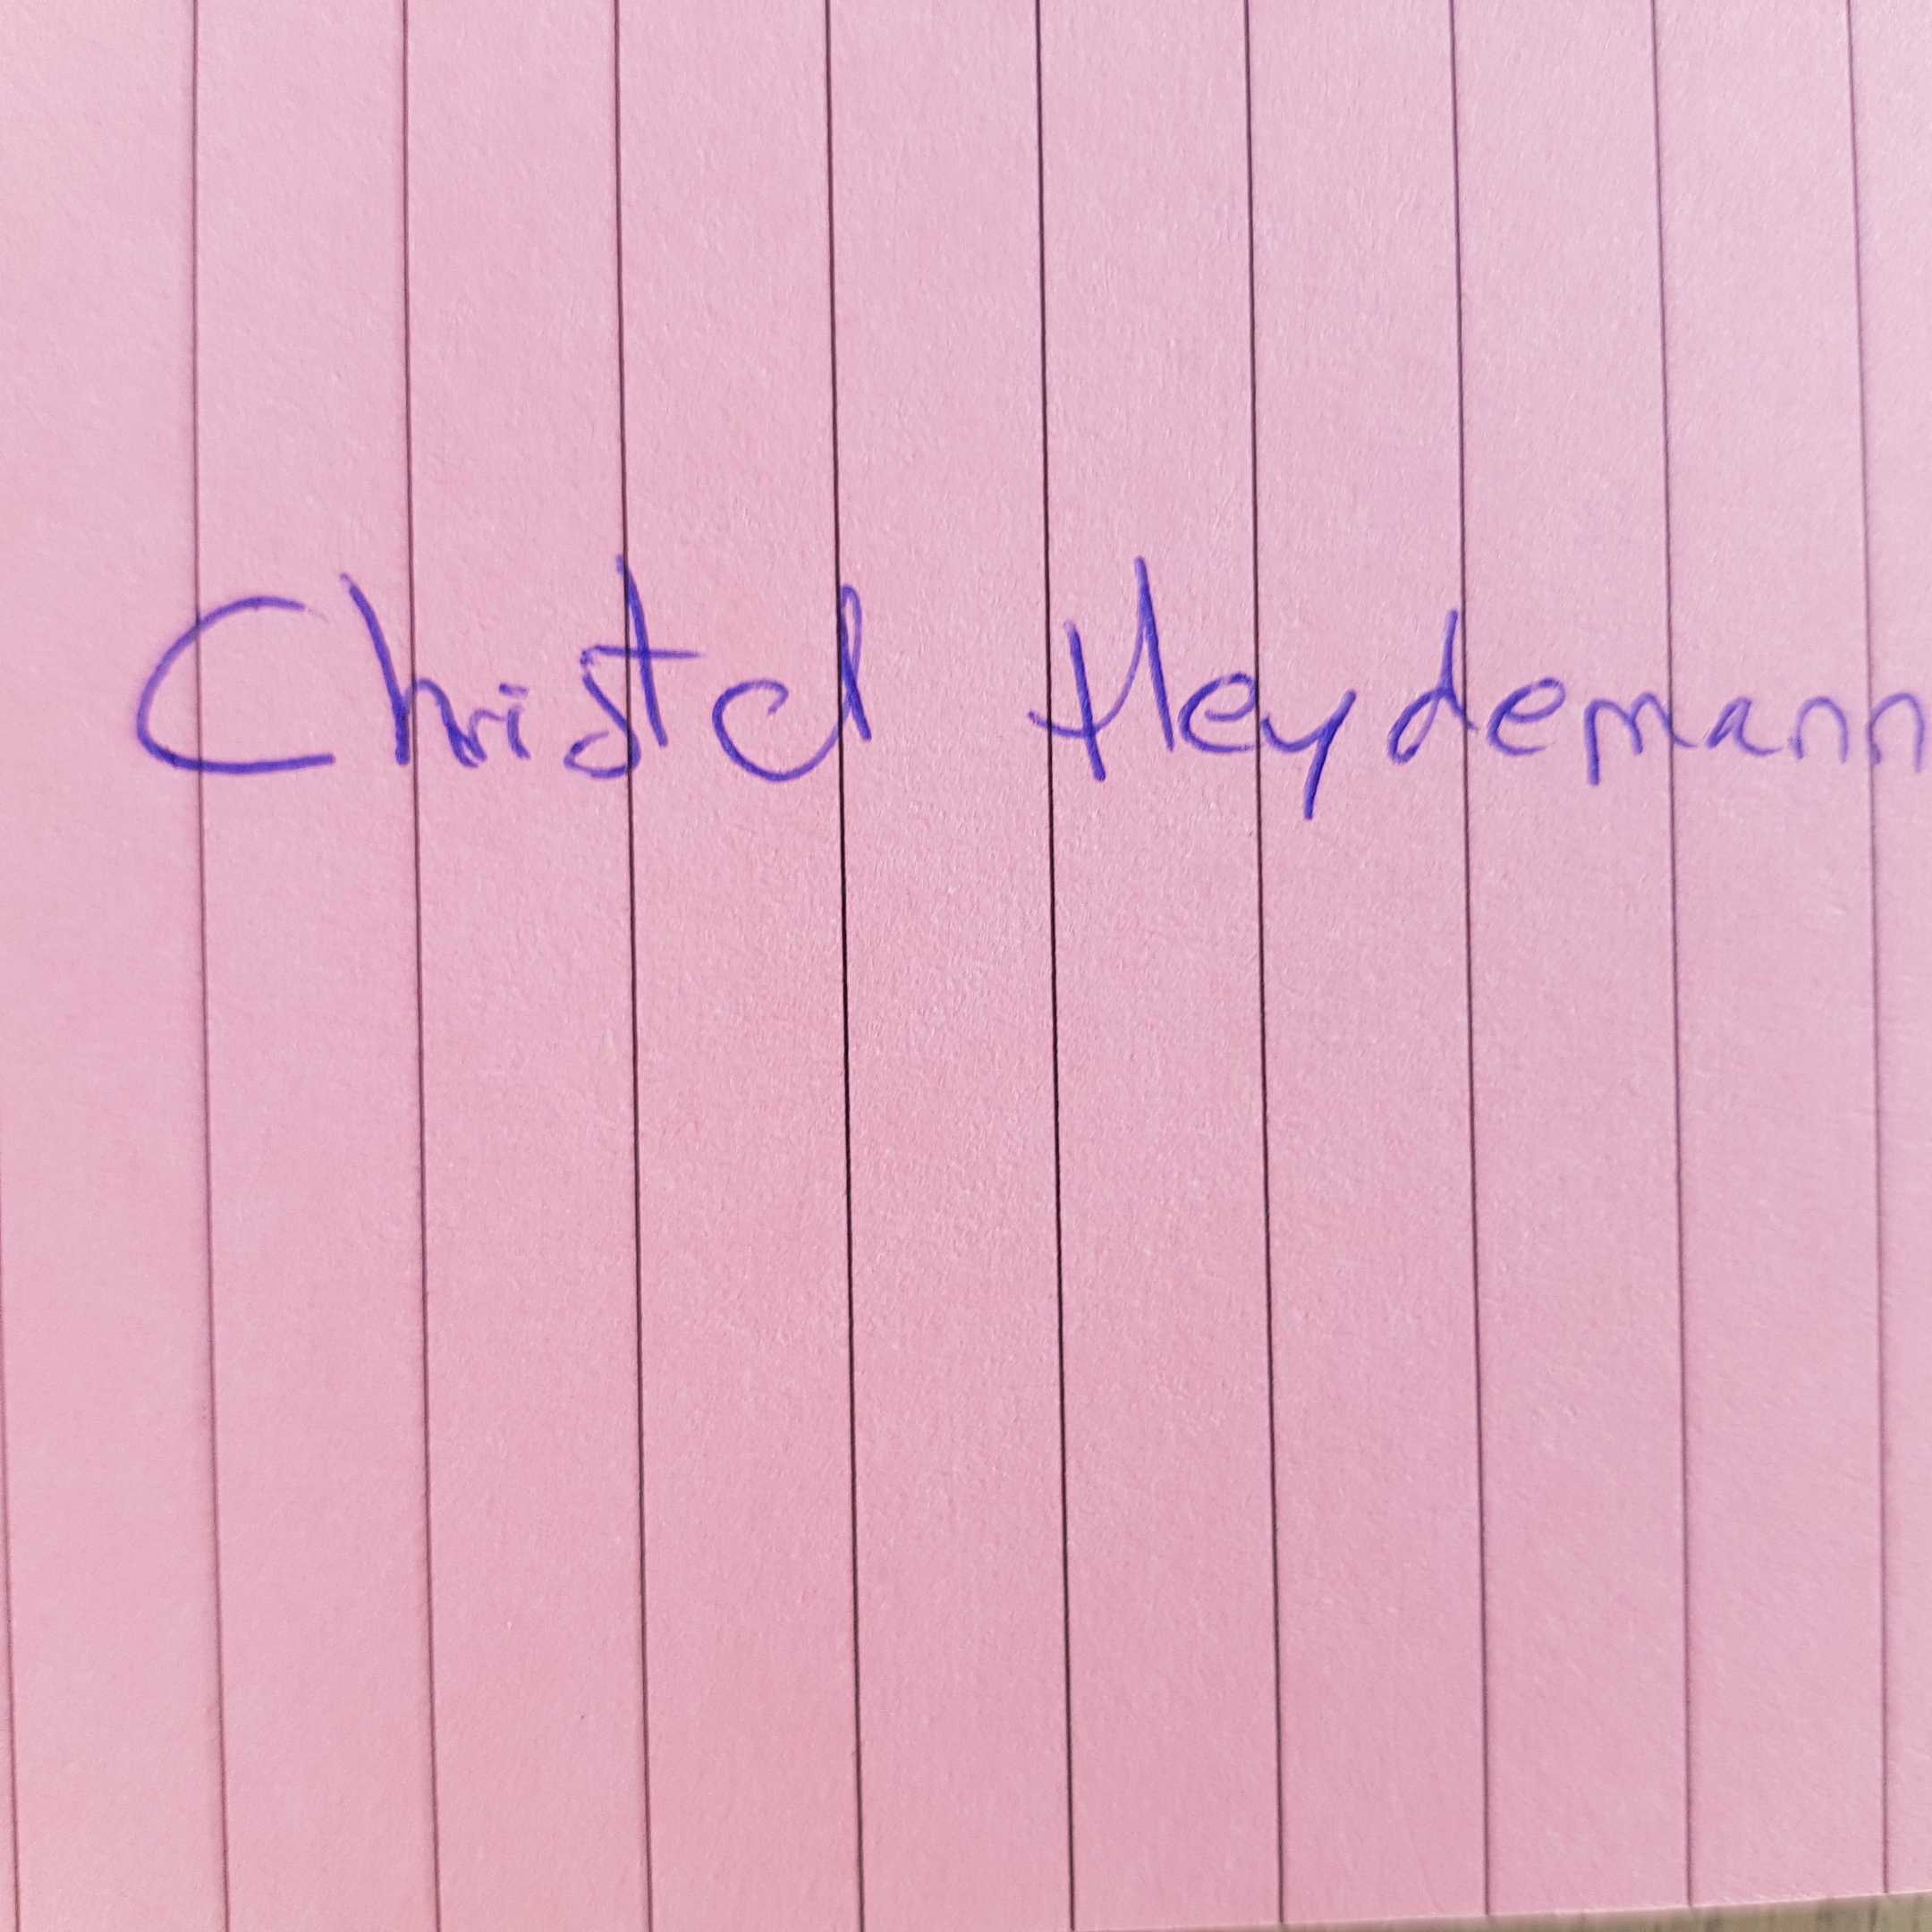 Christel Heydemann